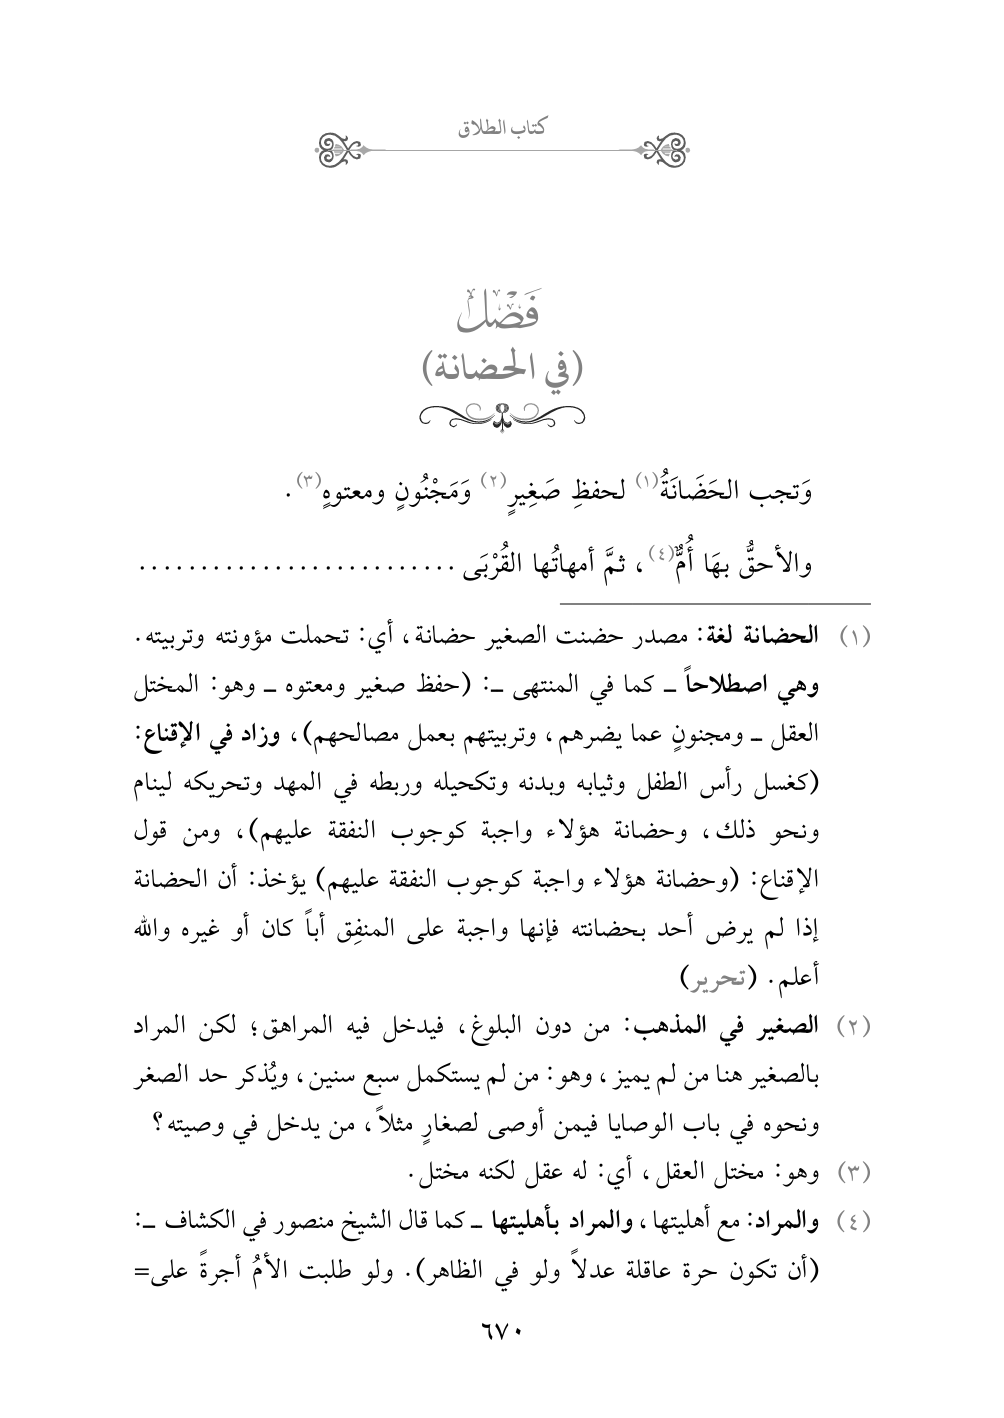 كتاب الطلاق
فَصْل
(في الحضانة)
وَتجب الحَضَانَةُ(١) لحفظِ صَغِيرٍ(٢) وَمَجْنُونٍ ومعتوهٍ(٣).
والأحقُّ بهَا أُمٌّ(٤)، ثمَّ أمهاتُها القُرْبَى ..........................
(١) الحضانة لغة: مصدر حضنت الصغير حضانة، أي: تحملت مؤونته وتربيته.
وهي اصطلاحاً ـ كما في المنتهى ـ: (حفظ صغير ومعتوه ـ وهو: المختل
العقل ـ ومجنونٍ عما يضرهم، وتربيتهم بعمل مصالحهم)، وزاد في الإقناع:
(كغسل رأس الطفل وثيابه وبدنه وتكحيله وربطه في المهد وتحريكه لينام
ونحو ذلك، وحضانة هؤلاء واجبة كوجوب النفقة عليهم)، ومن قول
الإقناع: (وحضانة هؤلاء واجبة كوجوب النفقة عليهم) يؤخذ: أن الحضانة
إذا لم يرض أحد بحضانته فإنها واجبة على المنفِق أباً كان أو غيره والله
أعلم. (تحرير)
(٢) الصغير في المذهب: من دون البلوغ، فيدخل فيه المراهق؛ لكن المراد
بالصغير هنا من لم يميز، وهو: من لم يستكمل سبع سنين، ويُذكر حد الصغر
ونحوه في باب الوصايا فيمن أوصى لصغارٍ مثلاً، من يدخل في وصيته؟
(٣) وهو: مختل العقل، أي: له عقل لكنه مختل.
(٤) والمراد: مع أهليتها، والمراد بأهليتها ـ كما قال الشيخ منصور في الكشاف ـ:
(أن تكون حرة عاقلة عدلاً ولو في الظاهر). ولو طلبت الأمُ أجرةً على=
٦٧٠